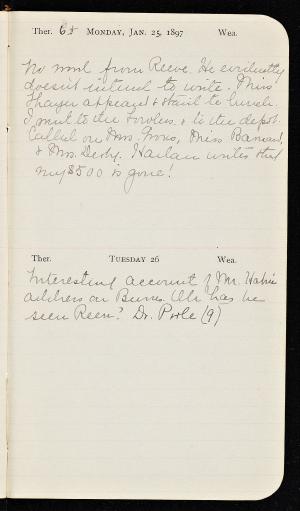 Ther. 65 MONDAY, JAN. 25, 1897 Wea.
No word from Reeve. He evidently
doesn't intend to write. Miss
Thayer appeared & staid to lunch.
I went to the & to the depot.
Called on Mrs. Miss
& Mrs. Derby. Harlan writes that
my $500 is gone!
Ther. TUESDAY 26 Wea.
Interesting account of Mr.
address on Burns. Oh has he
seen Reeve? Dr. Poole (9)